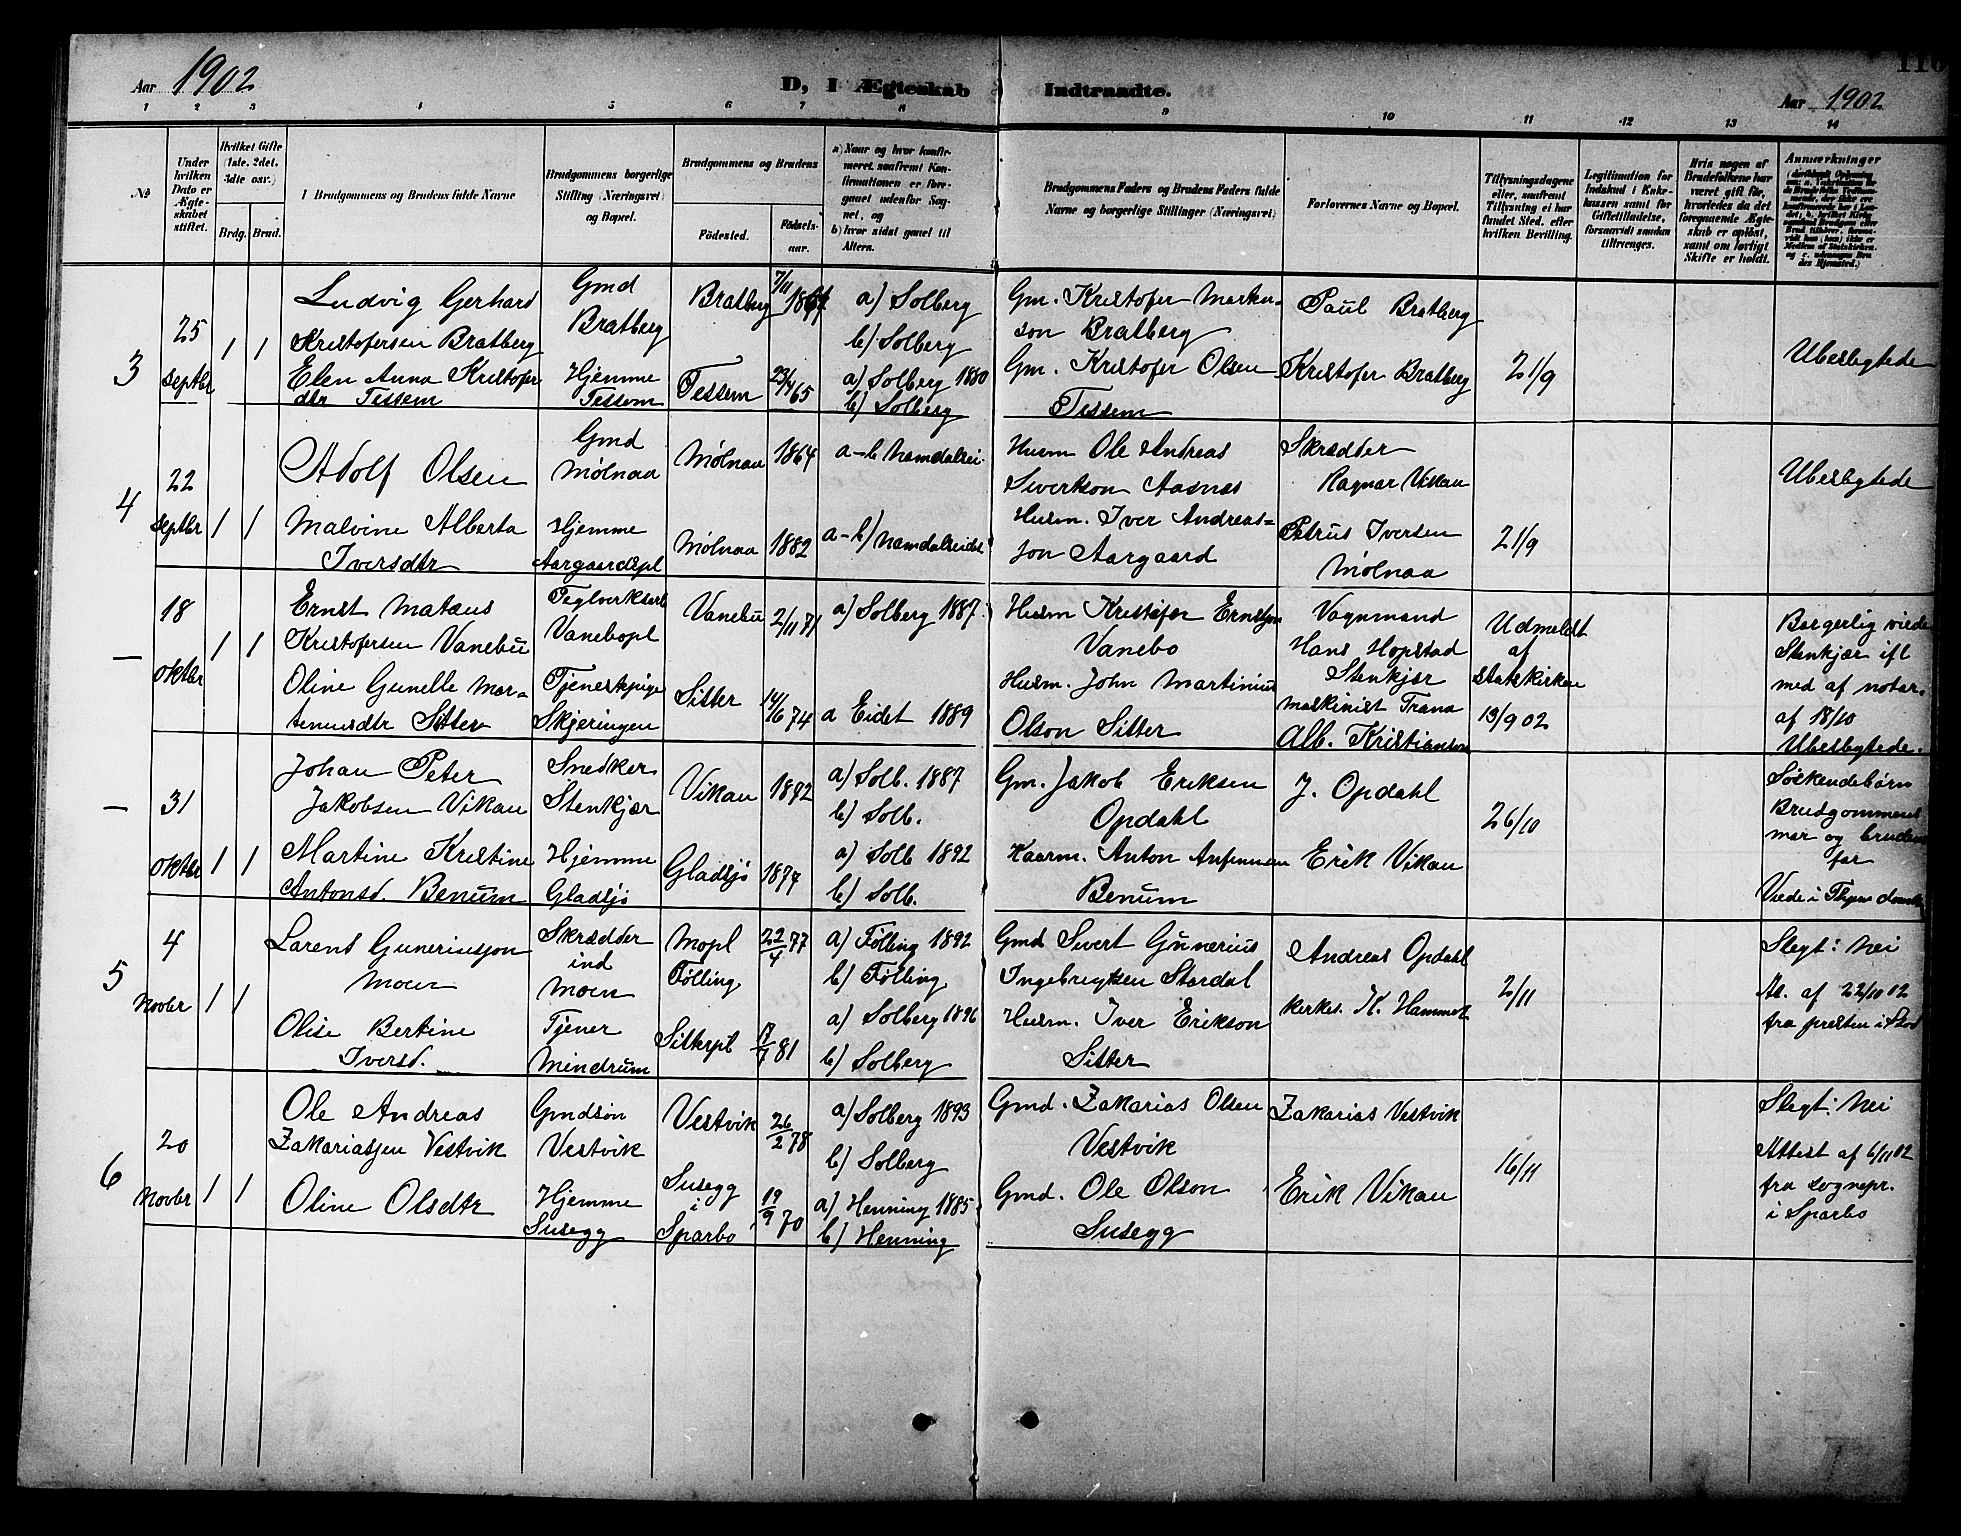 110
Aar 1902
D, I Ægteskab Indtraadte.
Aar 1902
1 2 3 4 5 6 7 8 9 10 11 12 13 14
№
Under hvilken Dato er Ægteskabet stiftet.
Hvilket Gifte (1ste, 2det, 3die osv.)
Brdg. Brud.
Brudgommens og Brudens fulde Navne
Brudgommens borgerlige Stilling (Næringsvei) og Bopæl.
Brudgommens og Brudens
Fødested.
Fødselsaar.
a) Naar og hvor konfirmeret, saafremt Konfirmationen er foregaaet udenfor Sognet, og
b) hvor sidst gaaet til Alters.
Brudgommens Faders og Brudens Faders fulde Navne og borgerlige Stillinger (Næringsvei)
Forlovernes Navne og Bopæl.
Tillysningsdagene eller, saafremt Tillysning ei har fundet Sted, efter hvilken Bevilling.
Legitimation for Indskud i Enkekassen samt for Giftetilladelse, forsaavidt saadan tiltrænges.
Hvis nogen af Brudefolkene har været gift før, hvorledes da det foregaaende Ægteskab er opløst, samt om lovligt Skifte er holdt.
Anmærkninger
3
25 Septbr
1 1
Ludvig Gerhard
Kristofersen Bratberg
Gmd
Bratberg
Bratberg
7/11
a) Solberg
b) Solberg
Gm. Kristofer Markus-
son Bratberg
Paul Bratberg
Elen Anna Kristofer
dtr Tessem
Hjemme
Tessem
Tessem
23/4 65
a) Solberg 1880
b) Solberg
Gm. Kristofer Olsen
Tessem
Kristofer Bratberg
21/9
Ubeslegtede
4
22 Septbr
1 1
Adolf Olsen
Gmd
Mølnaa
Mølnaa
1864
a-b Namdalsei.
Husm Ole Andreas
Sivertson Aasnes
Skrædder
Ragnar Vikan
Malvine Alberta
Iversdtr
Hjemme
Aargaardspl
Mølnaa
1882
a-b) Namdalseidet
Husm. Iver Andreas-
son Aargaard
Petrus Iversen
Mølnaa
21/9
Ubeslegtede
—
18 oktbr
1 1
Ernst Mataus
Kristofersen Vanebu
Teglverksarb
Vanebopl
Vanebu
2/11 71
a) Solberg 1887
Husm Kristofer Ernstsen
Vanebo
Vognmand
Hans Hopstad
Stenkjær
Oline Gunelle Mar-
tinusdtr Sitter
Tjenestpige
Skjeringen
Sitter
14/6 74
a Eidet 1889
Husm. John Martinius
Olson Sitter
maskinist Trana
Alb. Kristianson
Udmeldt
af
statskirken
13/9 02
Borgerlig viede
Stenkjær ifl
med af notar.
af 18/10
Ubeslegtede.
—
31 oktbr
1 1
Johan Peter
Jakobsen Vikan
Snedker
Stenkjær
Vikan
1872
a) Solb. 1887
b) Solb.
Gm. Jakob Eriksen
Opdahl
J. Opdahl
Martine Kristine
Antonsd. Benum
Hjemme
Gladsjø
Gladsjø
1877
a) Solb 1892
b) Solb.
Kaarm. Anton Anfinnsen
Benum
Erik Vikan
26/10
Søskendebørn
Brudgommens
mor og brudens
far
5
4 Novbr
1 1
Larents Guneriussøn
Moen
Skrædder
ind
Moen
Mopl
Følling
22/4 77
a) Følling 1892
b) Følling
Gmd Sivert Gunerius
Ingebrugtsen Stordal
Andreas Opdahl
Olise Bertine
Iversd.
Tjener
Mindrum
Sitterpl
17/7 81
a) Solberg 1896
b) Solberg
Husm. Iver Erikson
Sitter
Kirkes. K. Hammer
2/11
Slegt: Nei
At. af 22/10 02
fra presten i Stod
6
20 Novbr
1 1
Ole Andreas
Zakariassen Vestvik
Gmdsøn
Vestvik
Vestvik
26/2 78
a) Solberg 1893
b) Solberg
Gmd. Zakarias Olsen
Vestvik
Zakarias Vestvik
Oline Olsdtr
Hjemme
Susegg
Susegg
i
Sparbo
19/9 70
a) Henning 1885
b) Henning
Gmd. Ole Olson
Susegg
Erik Vikan
16/11
Slegt: Nei
Attest af 6/11 02
fra sognepr.
i Sparbo